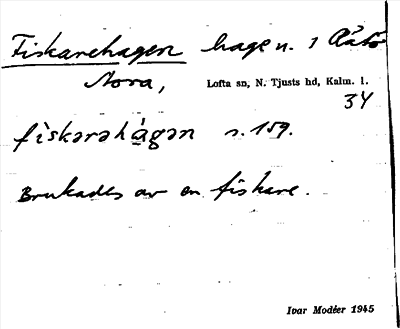 Fiskarehagen hage n. 1
Norra, Lofta sn, N. Tjusts hd, Kalm. l.
34
fìskarəhàgən s. 159.
Brukades av en fiskare.
Ivar Modéer 1945